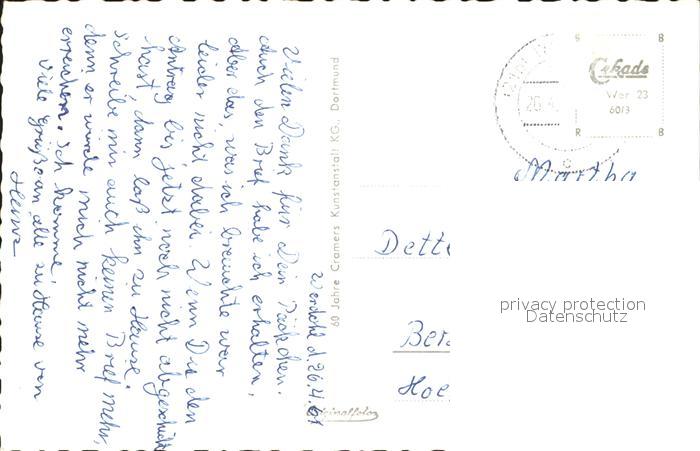 Werdohl d. 26.4.61
Vielen Dank für Dein Päckchen.
Auch den Brief habe ich erhalten,
aber das, was ich brauchte war
leider nicht dabei. Wenn Du den
Antrag bis jetzt noch nicht abgeschickt
hast, dann laß ihn zu Hause.
Schreibe mir auch keinen Brief mehr,
denn er würde mich nicht mehr
erreichen. Ich komme!
Viele Grüße an alle zu Hause von
Heinz
60 Jahre Cramers Kunstanstalt KG., Dortmund
Originalfoto
Cekade
Wer 23
6013
R B
Martha
Dette
Ber
Hoe
privacy protection
Datenschutz